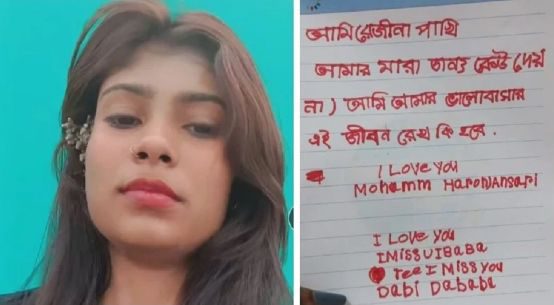 আমি রোজিনা পাখি
আমার মারা তান্য কেউ দেয়
না) আমি আমার ভালোবাসার
এই জীবন রেখে কি হবে.
I LOVE YOU
Mohamm HaronJAnsari
I LOVE YOU
IMISSUIBABA
I MISS YOU
DABI DABABA